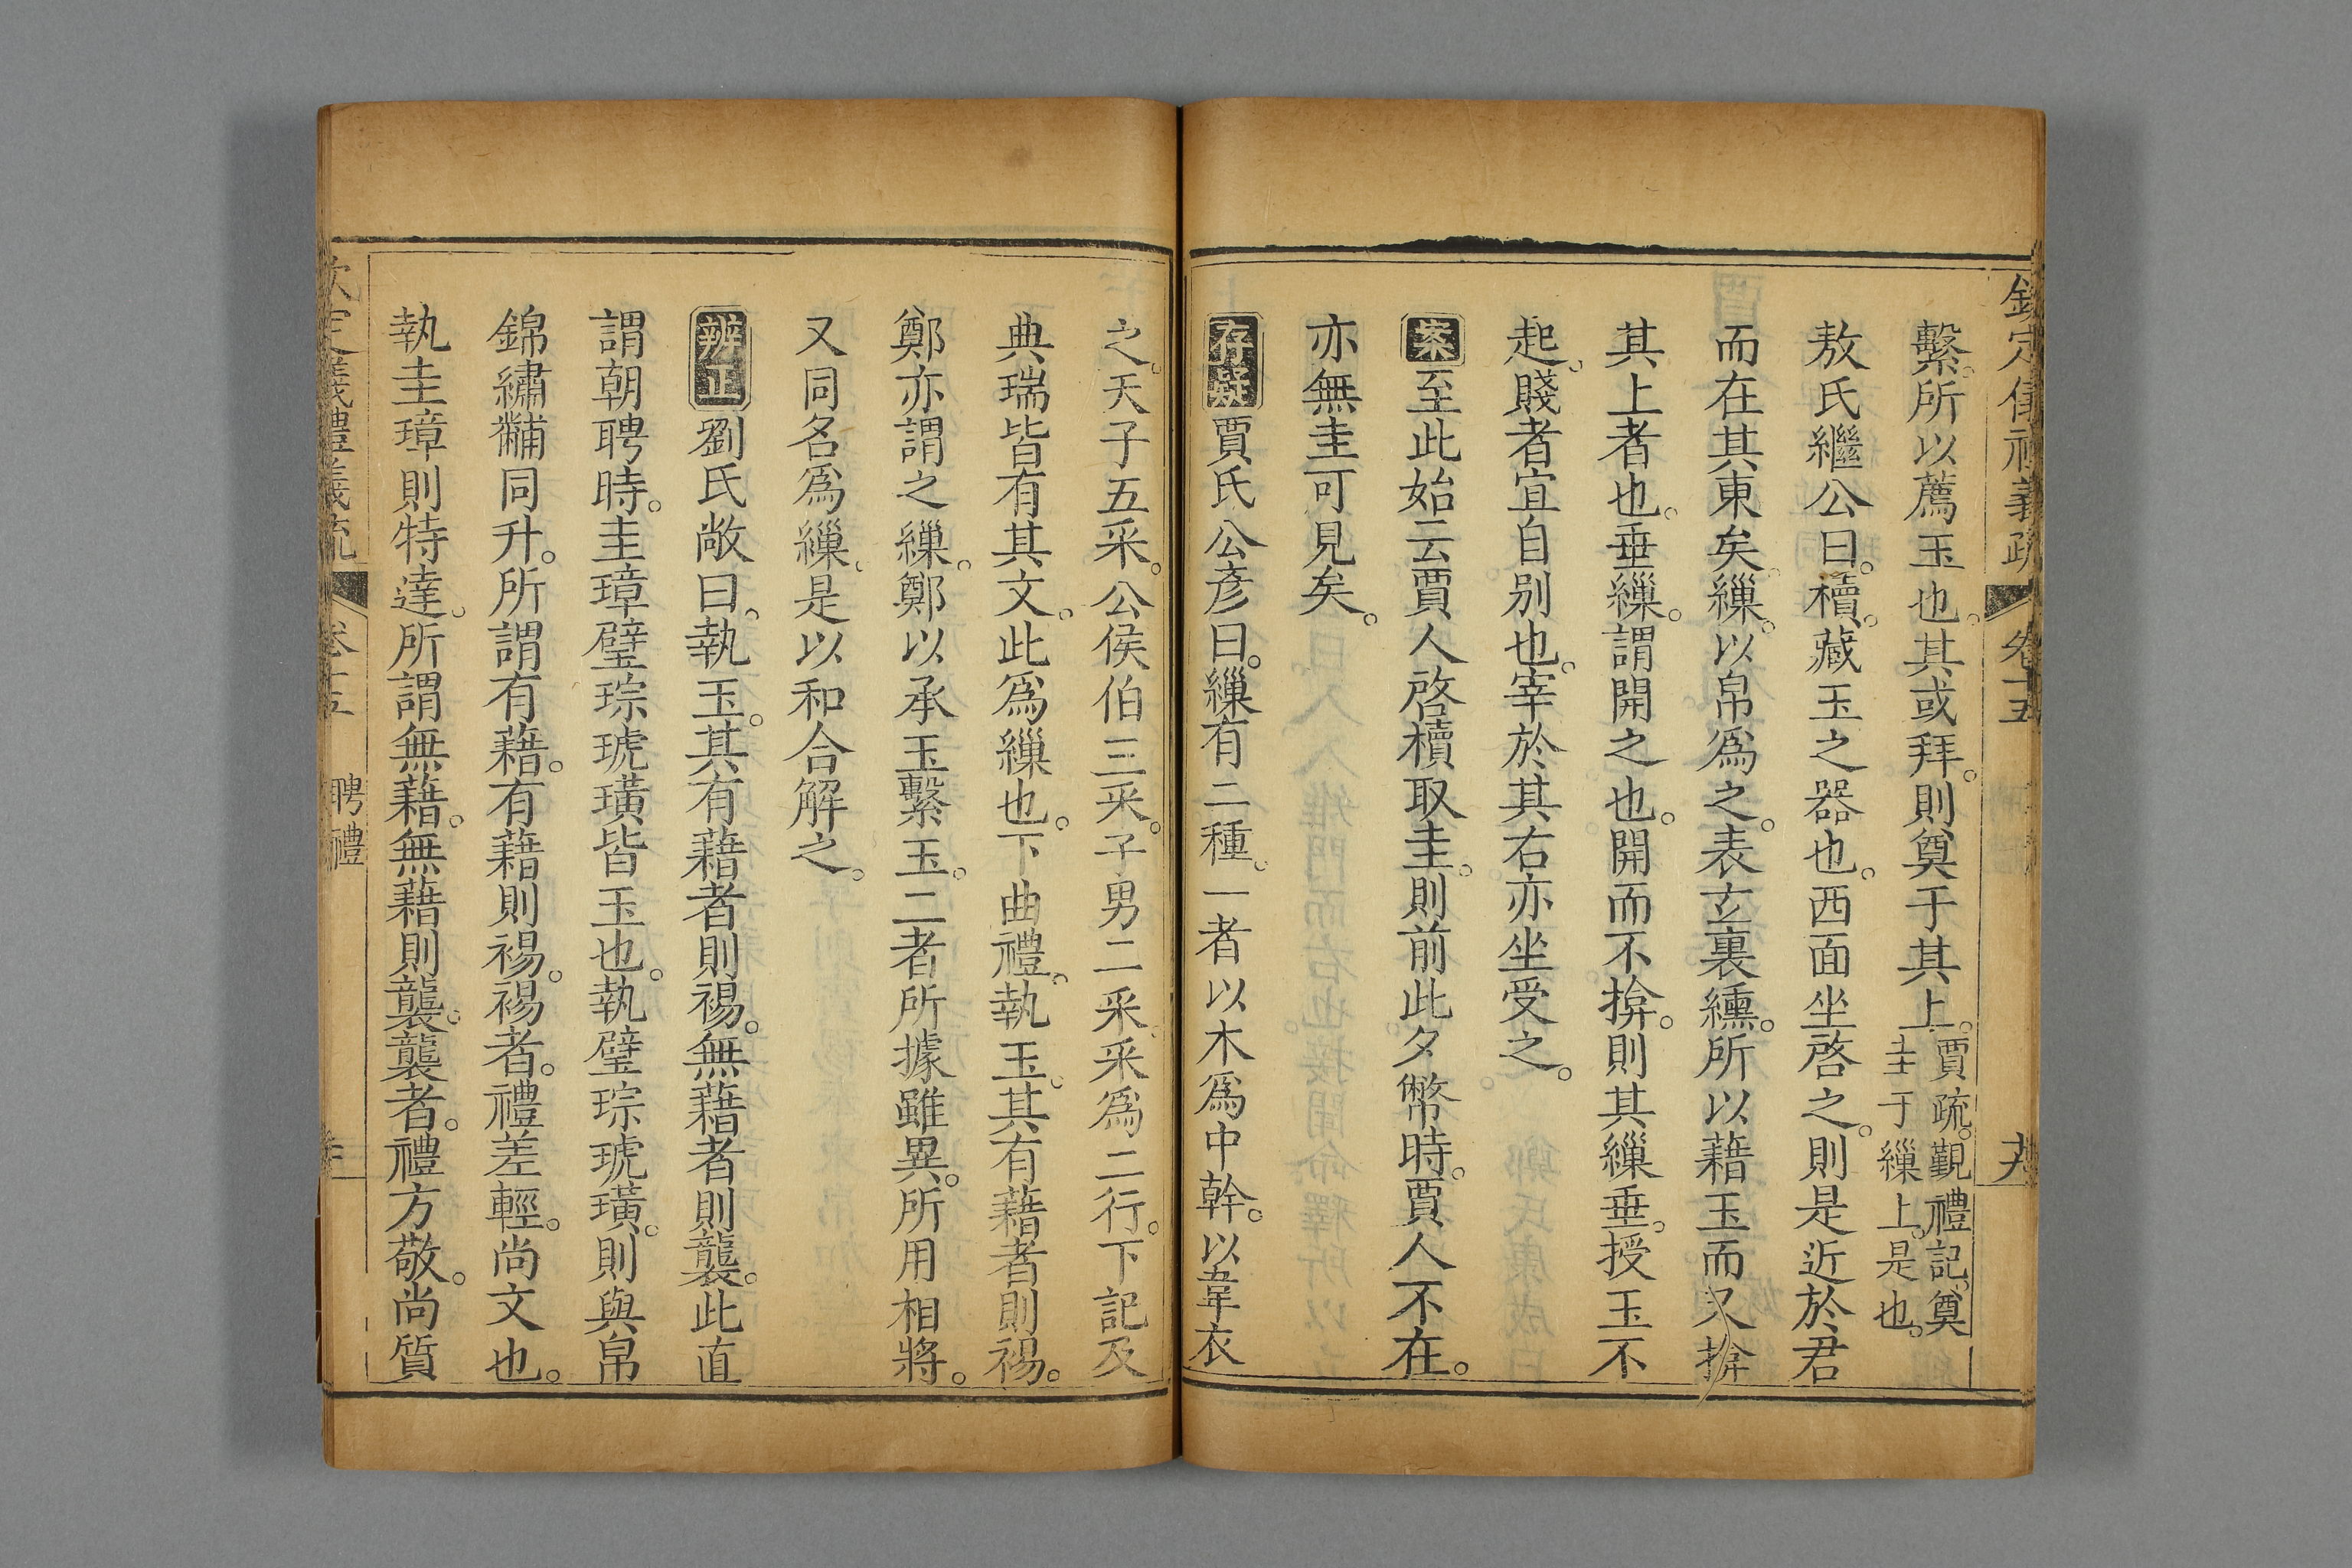 欽定儀禮義疏 卷十五
繫。所以薦玉也。其或拜。則奠于其上。賈疏。覲禮記。奠圭于繅上。是也。
敖氏繼公曰。櫝。藏玉之器也。西面坐啓之。則是近於君
而在其東矣。繅。以帛爲之。表玄裏纁。所以藉玉而又揜
其上者也。垂繅。謂開之也。開而不揜。則其繅垂。授玉不
起。賤者宜自别也。宰於其右亦坐受之。
案至此始云賈人啓櫝取圭。則前此夕幣時。賈人不在。
亦無圭可見矣。
存疑賈氏公彥曰。繅有二種。一者以木爲中幹。以韋衣
之。天子五采。公侯伯三采。子男二采。采爲二行。下記及
典瑞皆有其文。此爲繅也。下曲禮。執玉。其有藉者則裼。
鄭亦謂之繅。鄭以承玉繫玉。二者所據雖異。所用相將。
又同名爲繅。是以和合解之。
辨正劉氏敞曰。執玉。其有藉者則裼。無藉者則襲。此直
謂朝聘時。圭璋璧琮琥璜皆玉也。執璧琮琥璜。則與帛
錦繡黼同升。所謂有藉。有藉則裼。裼者。禮差輕。尚文也。
執圭璋則特達。所謂無藉。無藉則襲。襲者。禮方敬。尚質
欽定儀禮義疏 卷十五 聘禮